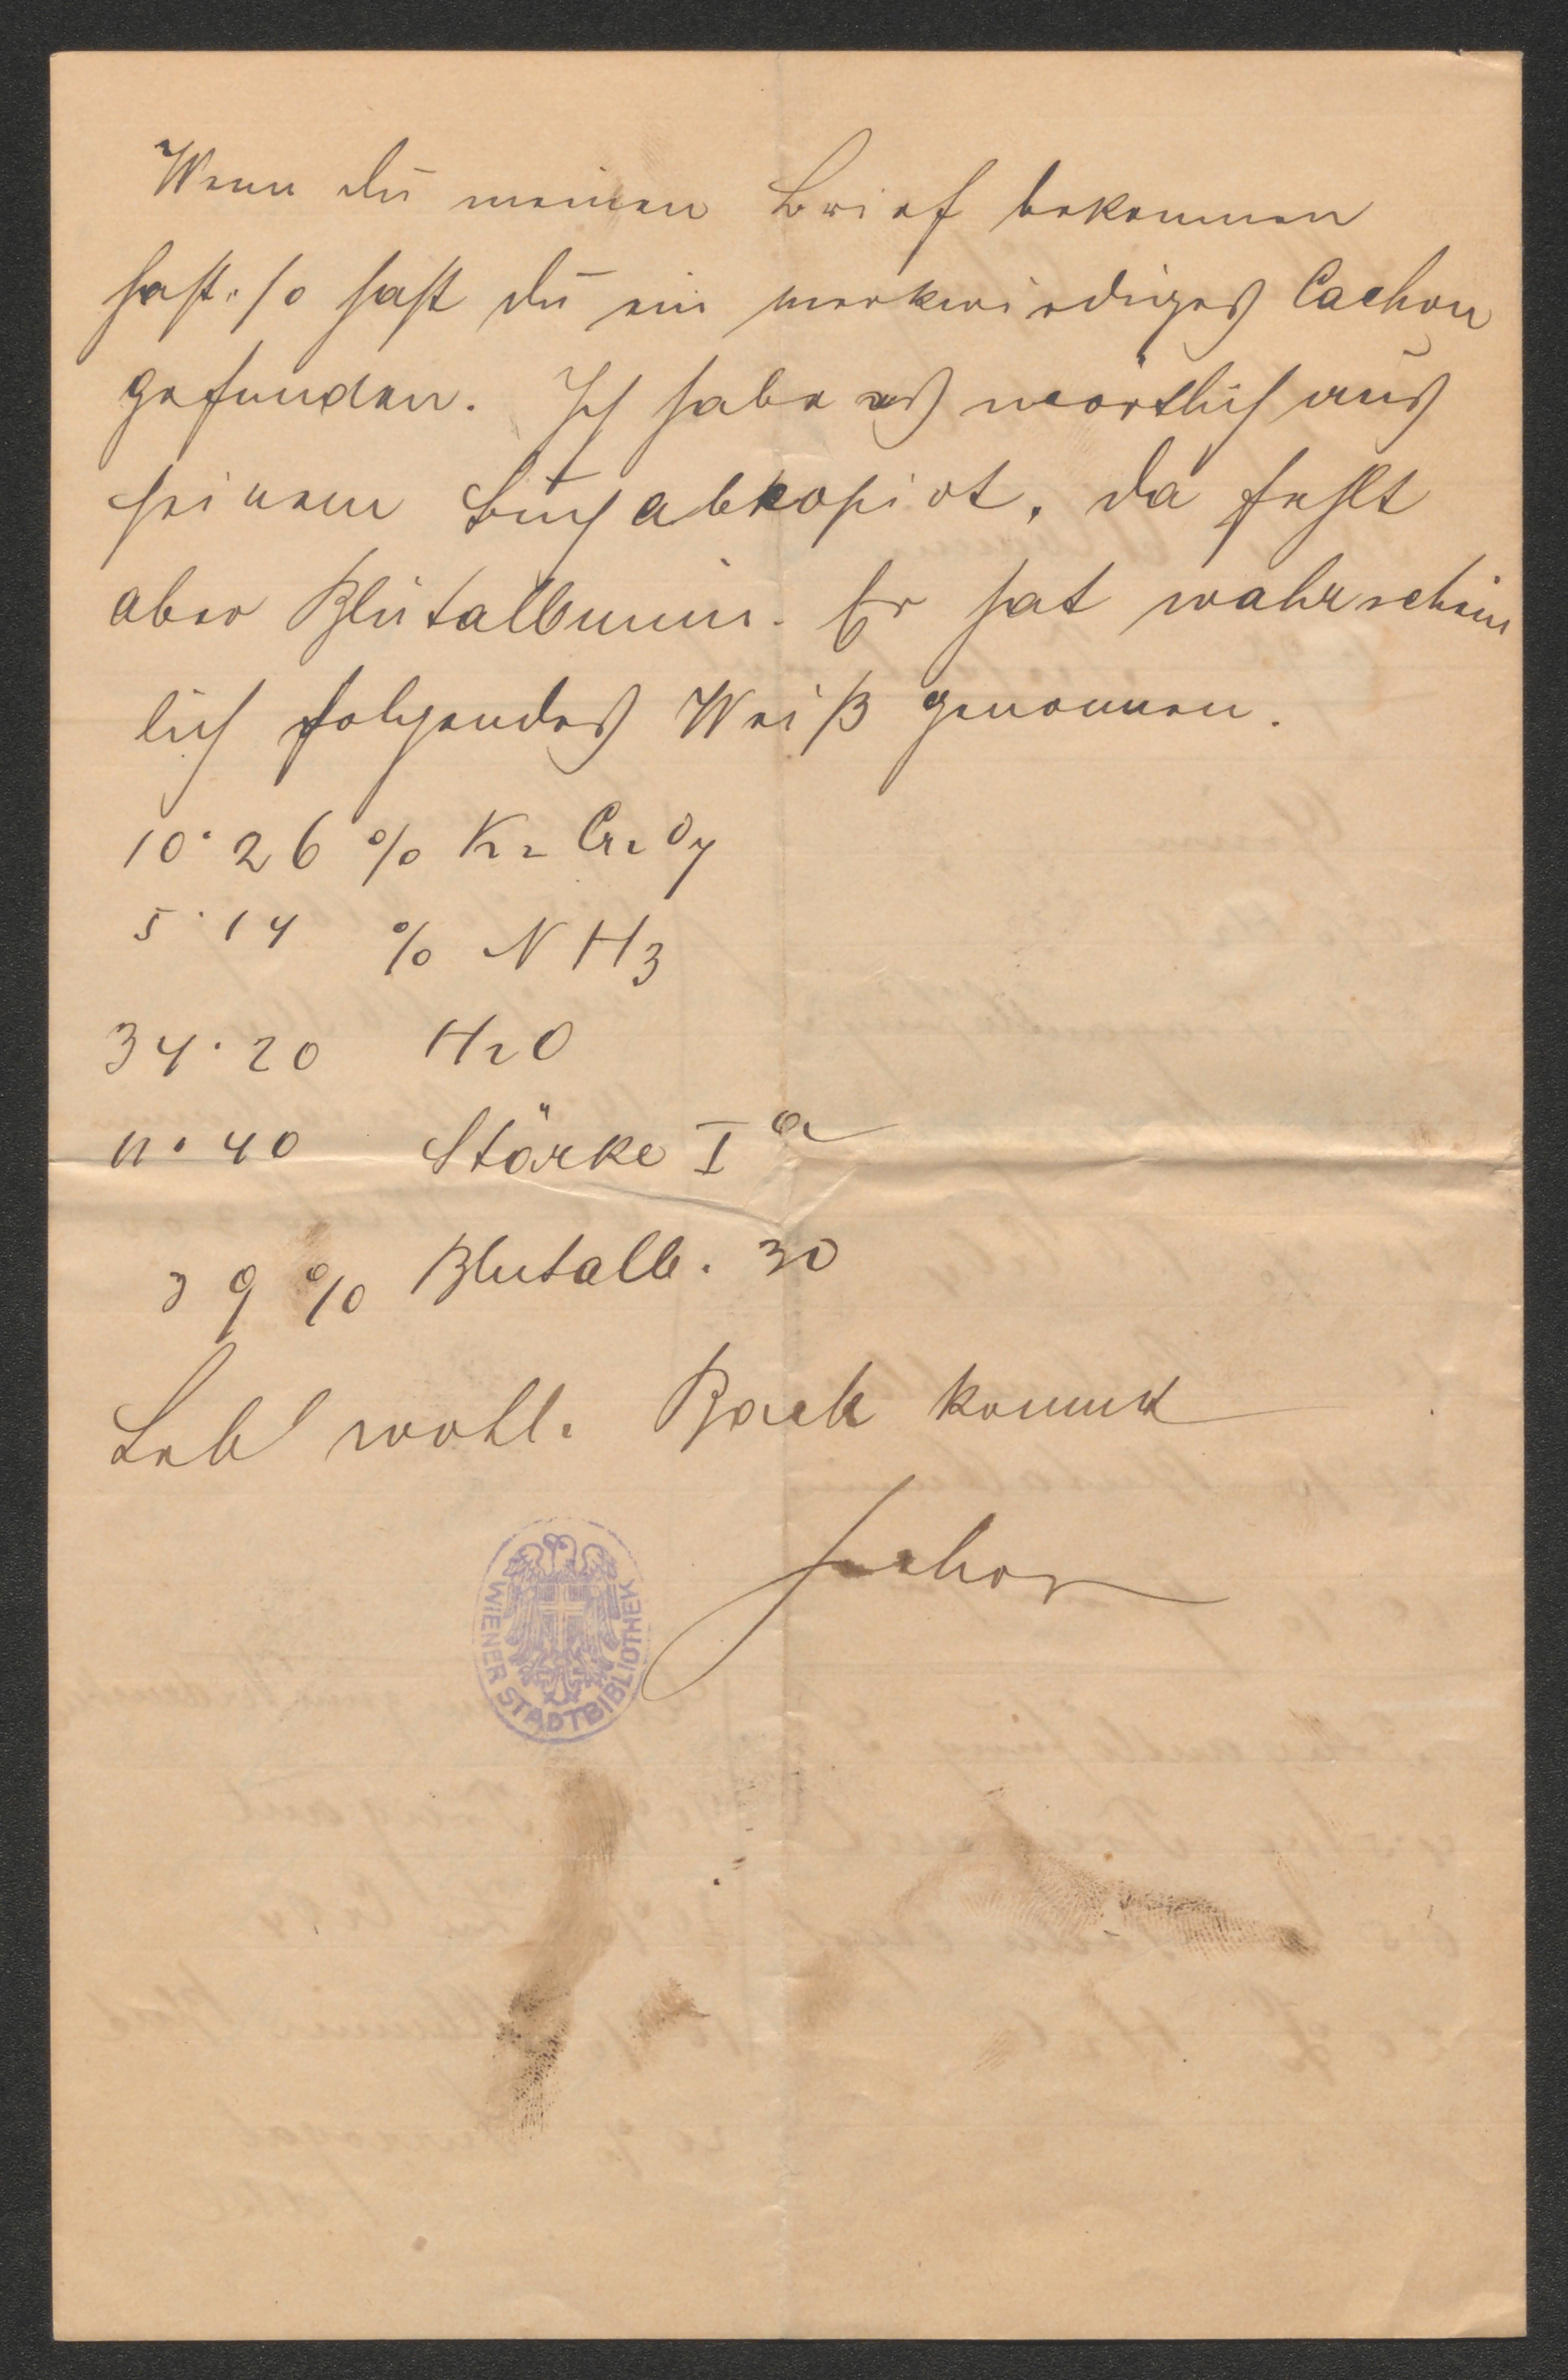 Wenn du meinen Brief bekommen
hast. so hast du ein merkwirdiges Cachou
gefunden. Ich habe es wörtlich aus
seinem Buch abkopirt. da fehlt
aber Blutalbumin. Er hat wahrschein
lich folgendes Weiß genommen.
10·26 % K2 Cr2 O7
5·14 % N H3
34·20 H2O
11·40 Stärke I a
39 % Blutalb. 30
Leb wohl. Back kommt
WIENER STADTBIBLIOTHEK